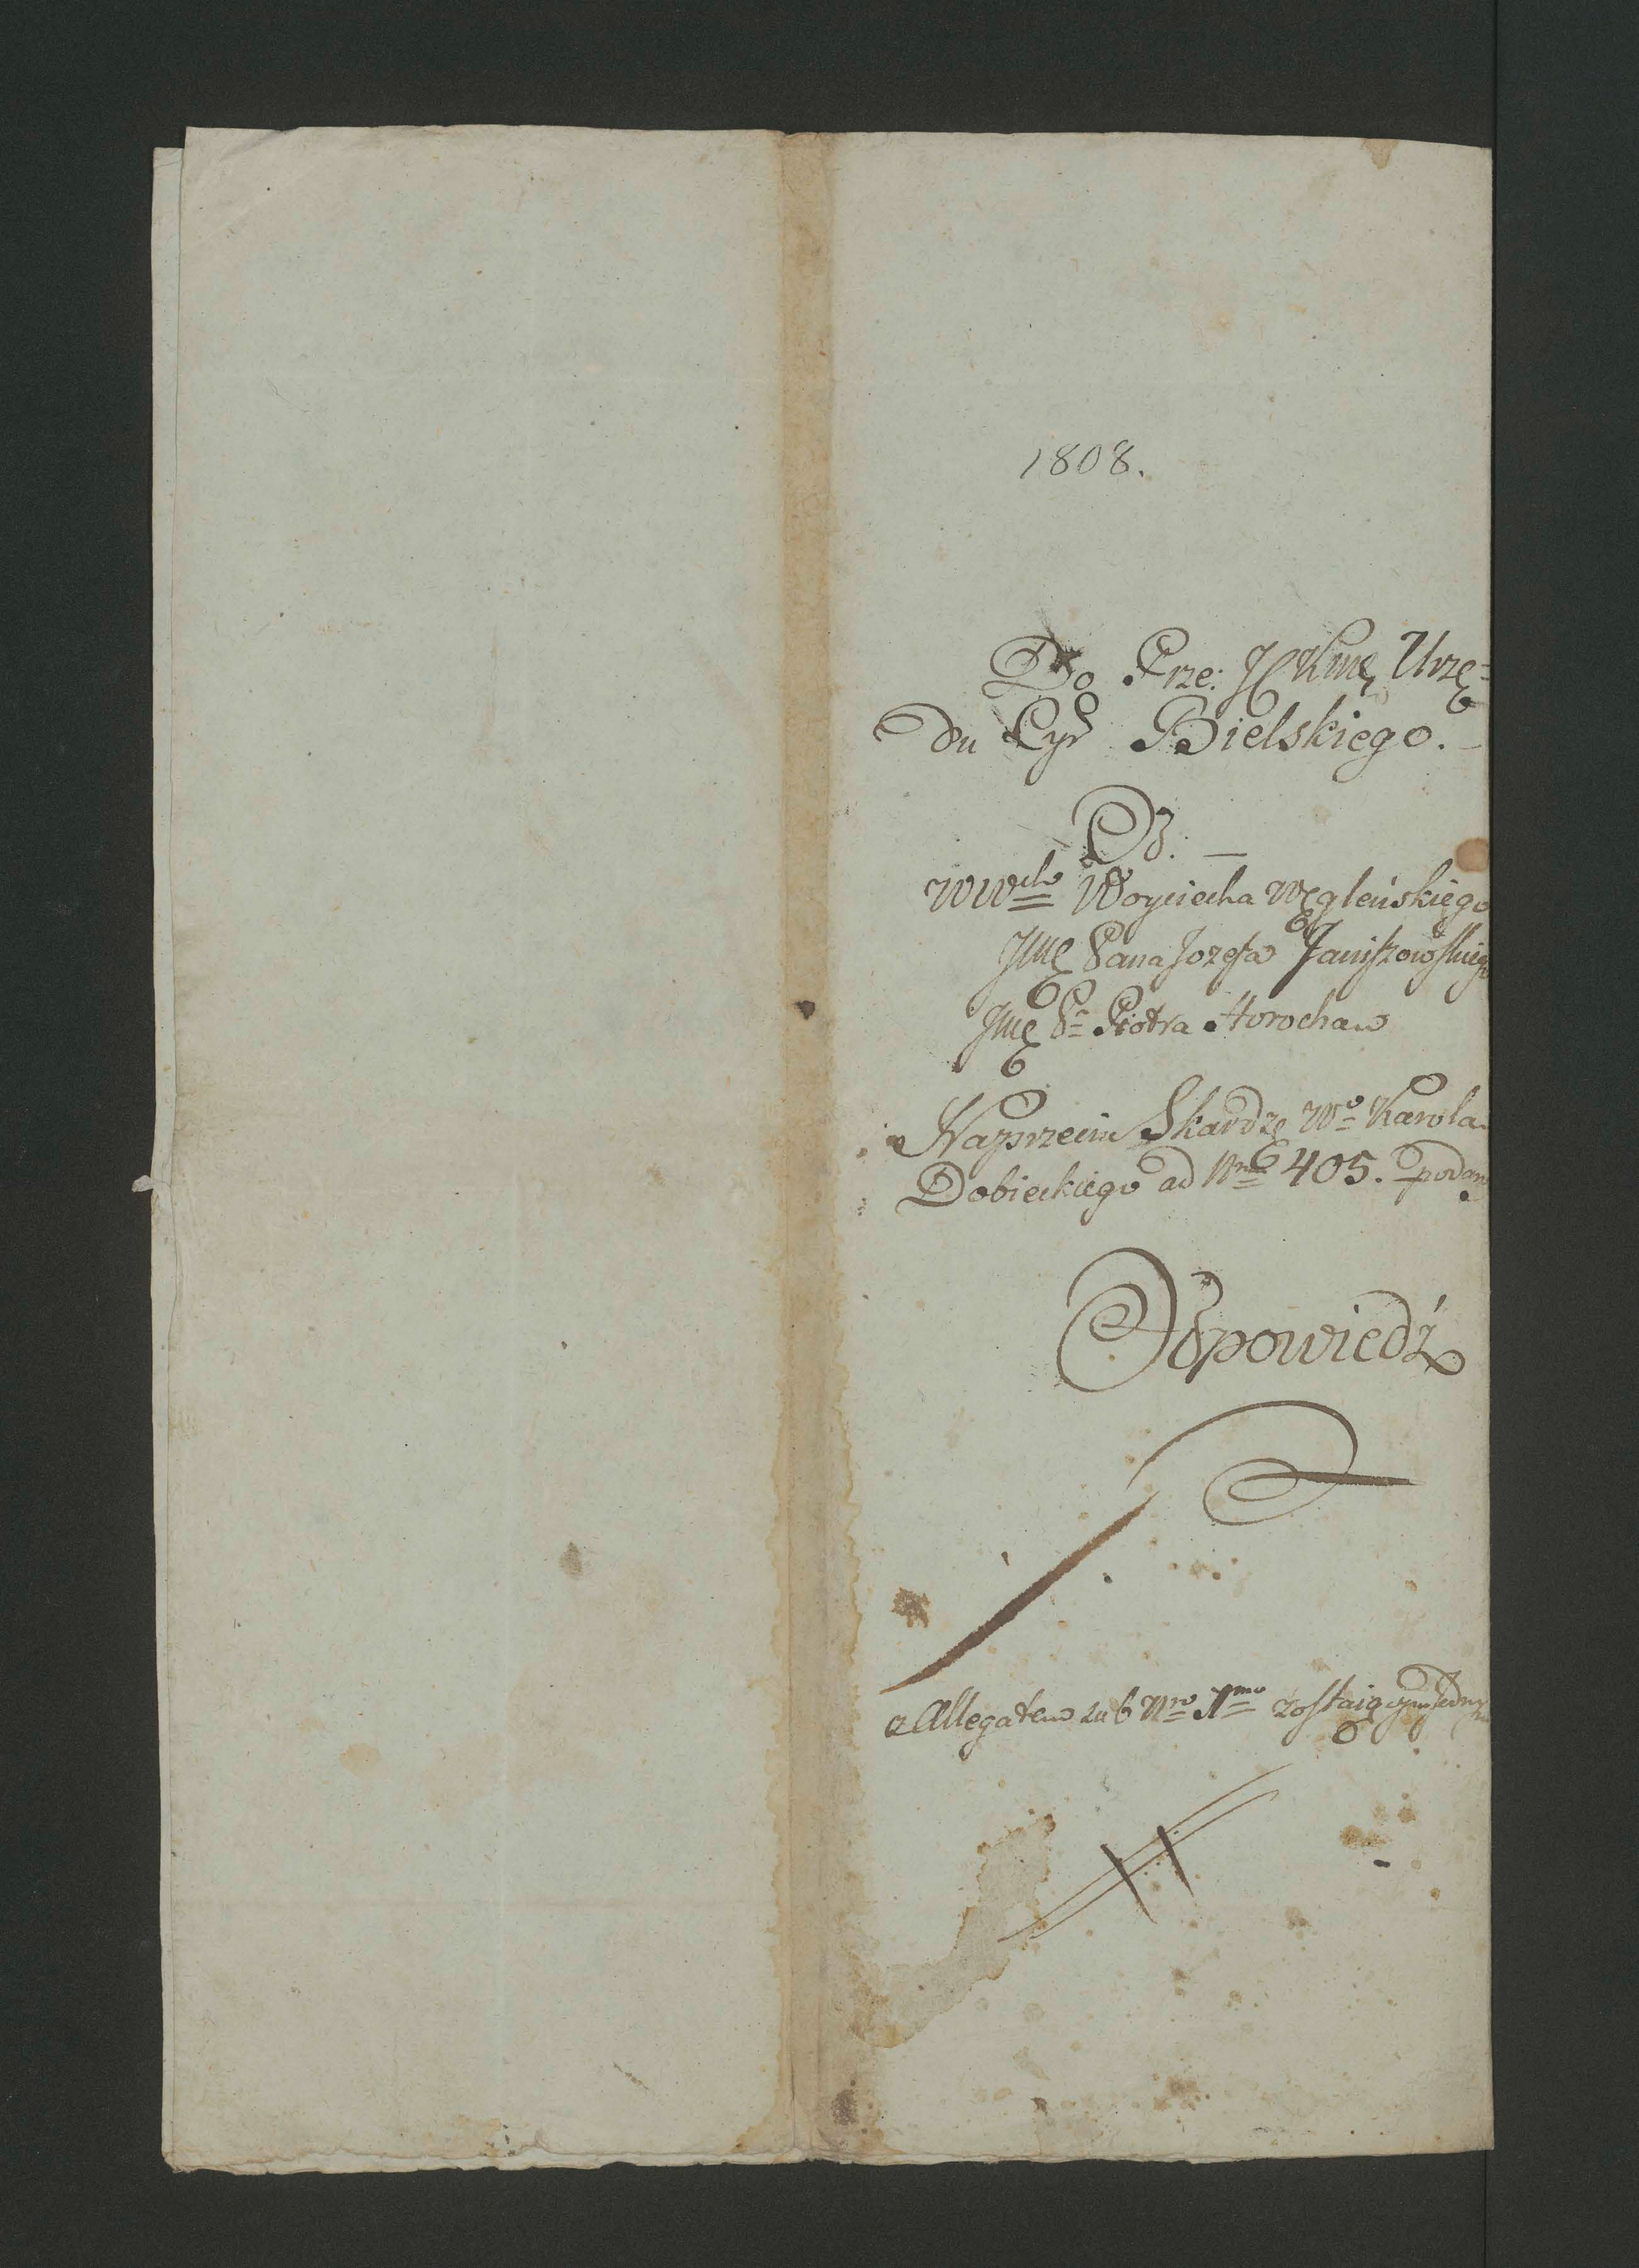 1808.
Do Prze: JCKmę Urzę=
du Cyr Bielskiego.
Od. —
WWch Woyciecha Węgleńskiego
Jmę Pana Jozefa Janiszowskiego
Jmę Pa Piotra Horocha
Naprzeciw Skardze Wo Karola
Dobieckiego ad Nrm 405. podan
Odpowiedź
z Allegatem sub Nro 1mo zostaiącym jednym